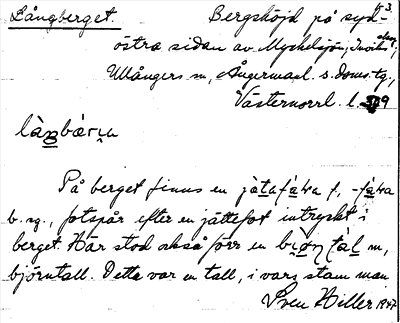 Långberget. Bergshöjd på syd-
östra sidan av Myckelsjön,
Ullångers sn, Ångermanl. s. doms. tg.,
Västernorrl. l.
På berget finns en
b. sg., fotspår efter en jättefot intryckt i
berget. Här stod också förr en
björntall. Detta var en tall, i vars stam man
Sven Hiller 1947